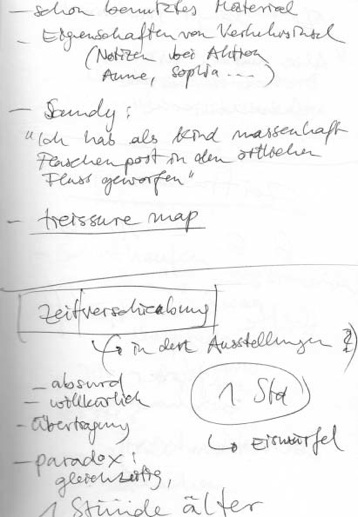 – schon benutztes Material
– Eigenschaften von Verkehrsinsel
(Notizen bei Aktion
Anne, Sophia ....)
– Sandy:
"Ich hab als Kind massenhaft
Flaschenpost in den örtlichen
Fluss geworfen"
– treissure map
Zeitverschiebung
↳ in den Ausstellungen ?)
– absurd
– willkürlich
– Übertragung
1 Std
↳ Eiswürfel
– paradox:
gleichzeitig,
1 Stunde älter